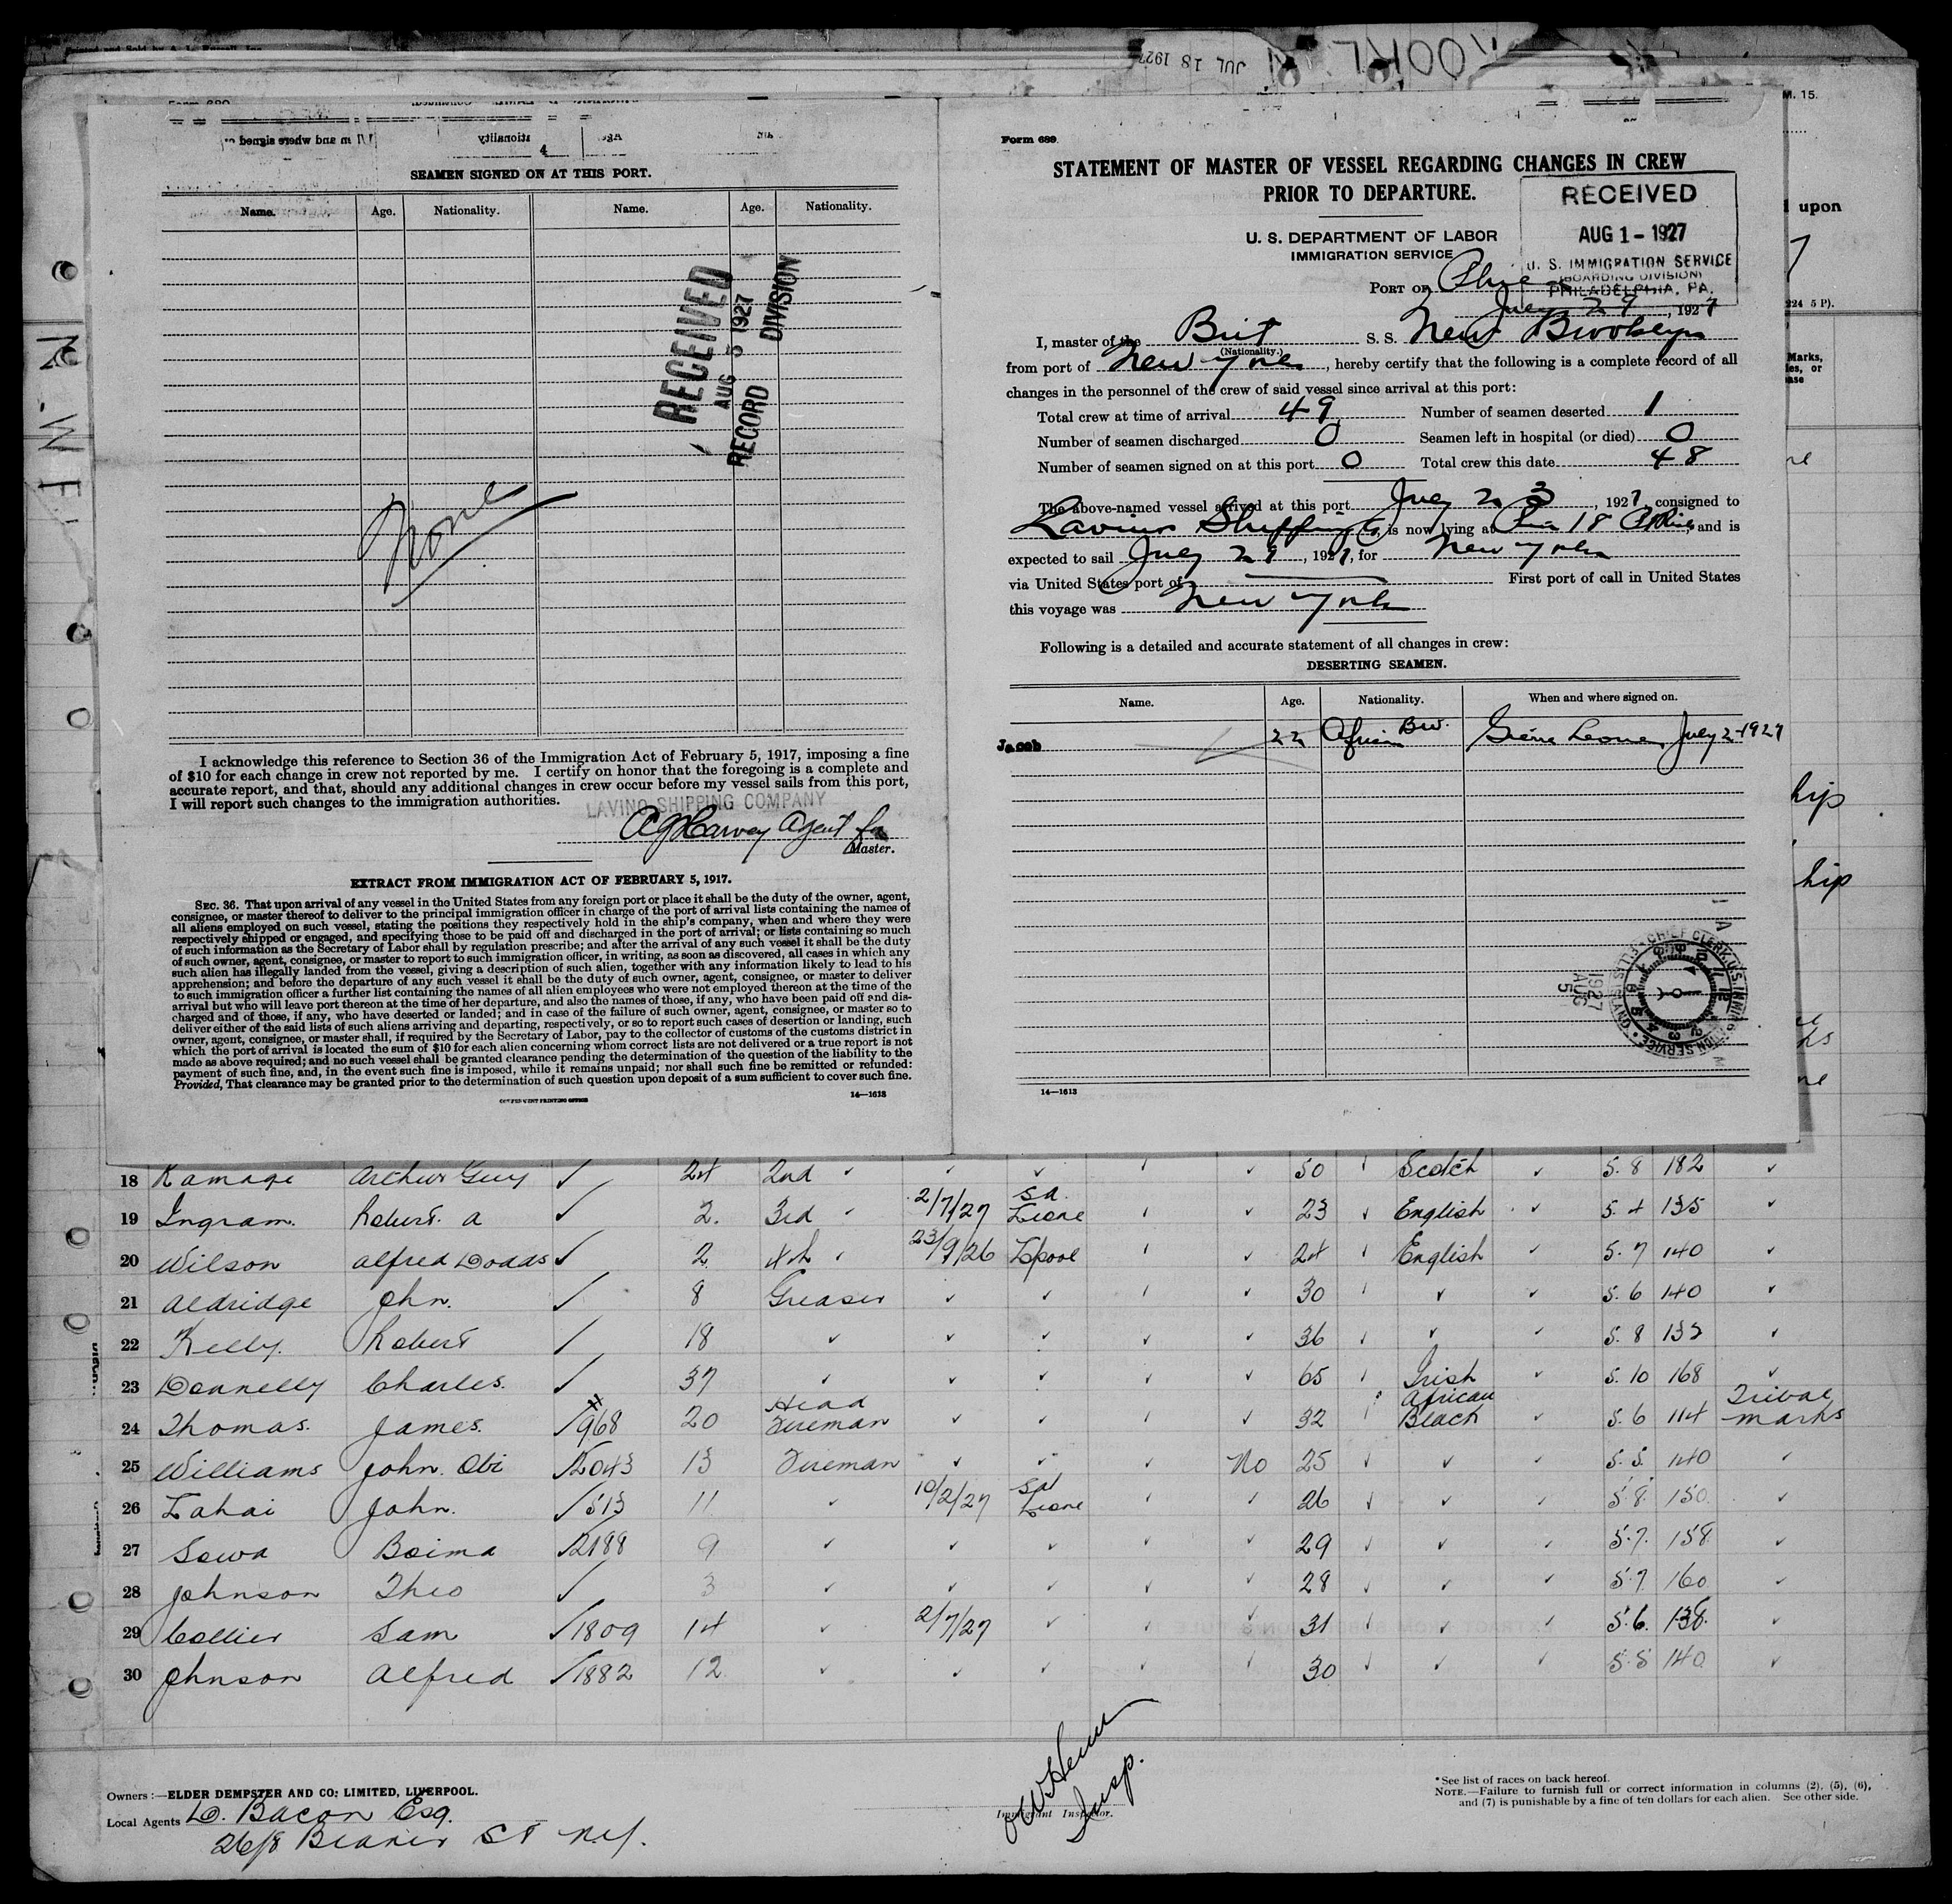 JUL 18 1927
M. 15.
SEAMEN SIGNED ON AT THIS PORT.
Name. Age. Nationality. Name. Age. Nationality.
RECEIVED
AUG 5 1927
RECORD DIVISION
None
I acknowledge this reference to Section 36 of the Immigration Act of February 5, 1917, imposing a fine
of $10 for each change in crew not reported by me. I certify on honor that the foregoing is a complete and
accurate report, and that, should any additional changes in crew occur before my vessel sails from this port,
I will report such changes to the immigration authorities.
LAVINO SHIPPING COMPANY
A G Harvey Agent for
Master.
EXTRACT FROM IMMIGRATION ACT OF FEBRUARY 5, 1917.
SEC. 36. That upon arrival of any vessel in the United States from any foreign port or place it shall be the duty of the owner, agent,
consignee, or master thereof to deliver to the principal immigration officer in charge of the port of arrival lists containing the names of
all aliens employed on such vessel, stating the positions they respectively hold in the ship's company, when and where they were
respectively shipped or engaged, and specifying those to be paid off and discharged in the port of arrival; or lists containing so much
of such information as the Secretary of Labor shall by regulation prescribe; and after the arrival of any such vessel it shall be the duty
of such owner, agent, consignee, or master to report to such immigration officer, in writing, as soon as discovered, all cases in which any
such alien has illegally landed from the vessel, giving a description of such alien, together with any information likely to lead to his
apprehension; and before the departure of any such vessel it shall be the duty of such owner, agent, consignee, or master to deliver
to such immigration officer a further list containing the names of all alien employees who were not employed thereon at the time of the
arrival but who will leave port thereon at the time of her departure, and also the names of those, if any, who have been paid off and dis-
charged and of those, if any, who have deserted or landed; and in case of the failure of such owner, agent, consignee, or master so to
deliver either of the said lists of such aliens arriving and departing, respectively, or so to report such cases of desertion or landing, such
owner, agent, consignee, or master shall, if required by the Secretary of Labor, pay to the collector of customs of the customs district in
which the port of arrival is located the sum of $10 for each alien concerning whom correct lists are not delivered or a true report is not
made as above required; and no such vessel shall be granted clearance pending the determination of the question of the liability to the
payment of such fine, and, in the event such fine is imposed, while it remains unpaid; nor shall such fine be remitted or refunded:
Provided, That clearance may be granted prior to the determination of such question upon deposit of a sum sufficient to cover such fine.
14—1613
Form 689
STATEMENT OF MASTER OF VESSEL REGARDING CHANGES IN CREW
PRIOR TO DEPARTURE.
RECEIVED
AUG 1 - 1927
U. S. IMMIGRATION SERVICE
(BOARDING DIVISION)
PHILADELPHIA, PA.
U. S. DEPARTMENT OF LABOR
IMMIGRATION SERVICE
PORT OF Phila
July 29, 1927
I, master of the Brit S. S. New Brooklyn
(Nationality.)
from port of New York, hereby certify that the following is a complete record of all
changes in the personnel of the crew of said vessel since arrival at this port:
Total crew at time of arrival 49 Number of seamen deserted 1
Number of seamen discharged 0 Seamen left in hospital (or died) 0
Number of seamen signed on at this port 0 Total crew this date 48
The above-named vessel arrived at this port July 23, 1927, consigned to
Lavino Shipping Co, is now lying at Pier 18 and is
expected to sail July 29, 1927, for New York
via United States port of First port of call in United States
this voyage was New York
Following is a detailed and accurate statement of all changes in crew:
DESERTING SEAMEN.
Name. Age. Nationality. When and where signed on.
Jacob 22 African Br. Sierra Leone, July 2-1927
CHIEF CLERK, U.S. IMMIGRATION SERVICE
1927 AUG 5
14—1613
upon
224 5 P).
Marks,
hip
hip
18 Ramage Arthur Guy ✓ 24 2nd ✓ ✓ ✓ ✓ ✓ 50 ✓ Scotch ✓ 5.8 182 ✓
19 Ingram. Robert. A ✓ 2. 3rd ✓ 2/7/27 Sa. Leone ✓ ✓ 23 ✓ English ✓ 5.4 135 ✓
20 Wilson Alfred Dodds ✓ 2 4th ✓ 23/9/26 Lpool ✓ ✓ 24 ✓ English ✓ 5.7 140 ✓
21 Aldridge John. ✓ 8 Greaser ✓ ✓ ✓ ✓ 30 ✓ ✓ ✓ 5.6 140 ✓
22 Kelly. Robert ✓ 18 ✓ ✓ ✓ ✓ ✓ 36 ✓ ✓ ✓ 5.8 132 ✓
23 Donnelly Charles. ✓ 37 ✓ ✓ ✓ ✓ ✓ 65 ✓ Irish ✓ 5.10 168 ✓
24 Thomas. James. ✓968 20 Head Fireman ✓ ✓ ✓ ✓ 32 ✓ African Black ✓ 5.6 114 Tribal marks
25 Williams John. Obi ✓2043 13 Fireman ✓ ✓ ✓ No 25 ✓ ✓ ✓ 5.5. 140 ✓
26 Lahai John. ✓513 11 ✓ 10/2/27 Sa Leone ✓ ✓ 26 ✓ ✓ ✓ 5.8. 150 ✓
27 Sowa Boima ✓2188 9 ✓ ✓ ✓ ✓ ✓ 29 ✓ ✓ ✓ 5.7. 158 ✓
28 Johnson Theo ✓ 3 ✓ ✓ ✓ ✓ ✓ 28 ✓ ✓ ✓ 5.7 160 ✓
29 Collier Sam ✓1809 14 ✓ 2/7/27 ✓ ✓ ✓ 31 ✓ ✓ ✓ 5.6. 138. ✓
30 Johnson Alfred ✓1882 12 ✓ ✓ ✓ ✓ ✓ 30 ✓ ✓ ✓ 5.5 140 ✓
Owners:—ELDER DEMPSTER AND CO; LIMITED, LIVERPOOL.
Local Agents D. Bacon Esq.
26/8 Beaver St N.Y.
Insp.
Immigrant Inspector.
*See list of races on back hereof.
NOTE.—Failure to furnish full or correct information in columns (2), (5), (6),
and (7) is punishable by a fine of ten dollars for each alien. See other side.